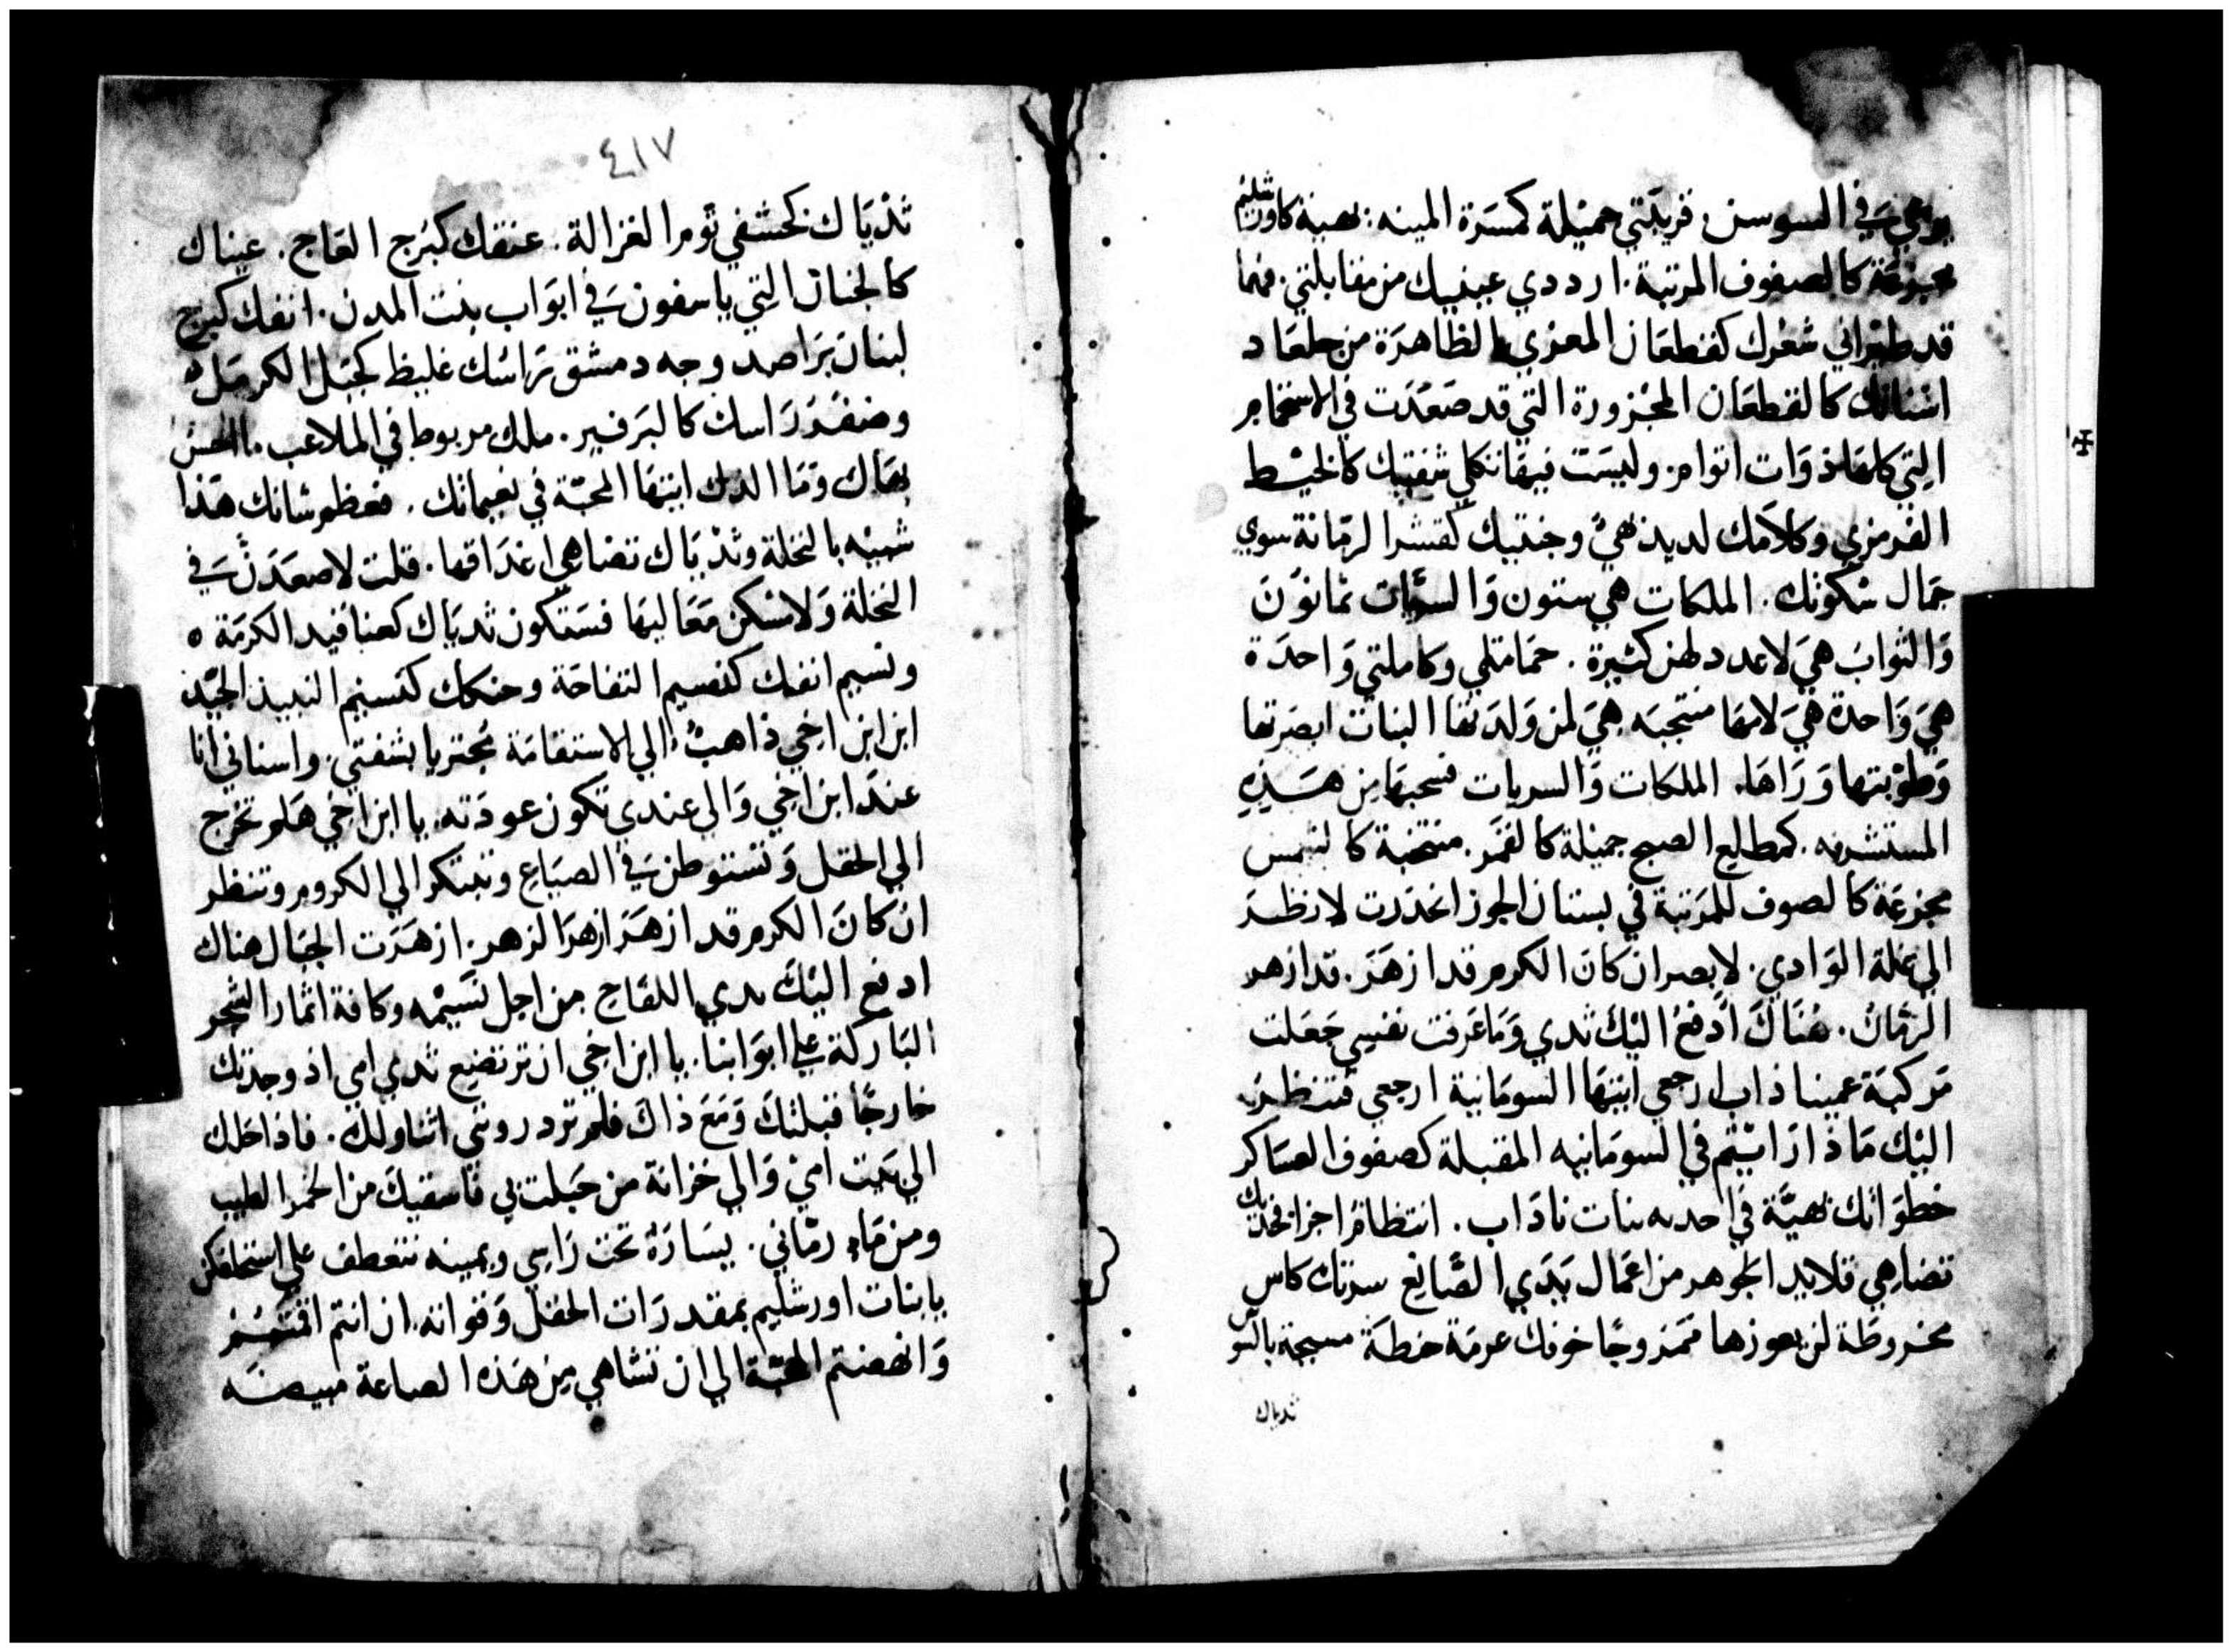 يرعي في السوسن، قريبتي جميلة كمسرة المينه: بهية كاورشليم
مجزعة كالصفوف المرتبة. ارددي عينيك من مقابلتي. فهما
قد طيراني شعرك كقطعان المعزي الظاهرة من جلعاد
اسنانك كالقطعان المجزورة التي قد صعدت في الاستحمام
التي كلها ذوات اتوام وليست فيها ثكلي شفتيك كالخيط
القرمزي وكلامك لذيذ هيً وجنتيك كقشر الرمانة سوي
جمال سكوتك. الملكات هي ستون وَالسريات ثمانوُنَ
وَالشواب هيَ لا عدد لهن كثيرة. حمامتي وكاملتي وَاحدَة
هيَ وَاحدة هيَ لامها منتجبه هيَ لمن وَلدَتها البنات ابصرتها
وَطوّبتها وَرَاهَا. الملكات وَالسريات فسحبها من هَذه
المستشرفه. كمطالع الصبح جميلة كالقمَر. منتخبة كالشمس
مجزعَة كالصفوف المرَتبة في بستان الجوز انحدَرت لانظـر
الي غلة الوَادي. لابصر ان كانَ الكرم قد ازهَرَ. قد ازهر
الرمانُ. هُنَاكَ ادفعُ اليَكَ ثدي وَمَا عَرفت نفسي جَعَلت
مَركبَة عميناذاب ارجعي ايتهَا السومَانية ارجعي فتنظر
اليَك مَاذا رَايتُم في السومَانيه المقبلة كصفوف العسَاكر
خطوَاتك بَهيَّة في احديه بنات ناذَاب. انتظامُ اجزا فخذيك
تضاهي قلايد الجوهر من اعمَال يَدَي الصَّانع سرتك كاس
مخروطَة لن يعوزها ممَزوجًا خوفك عرمَة حنطَة مسيجة بالسو
ثدياك
٤١٧
ثدْيَاك كخشفي تؤم الغزالة. عنقك كبُرج العَاج. عيناك
كالجنان التي ياسفون في ابوَاب بنت المدن. انفك كبرج
لبنانَ يرَاصد وجه دمشق رَاسُك غليظ كجبَل الكرمَل ه
وضفُر رَاسك كالبَرفير. ملك مربوط في الملاعب. ما احسن
بهَاك وَمَا الذك ايتهَا المحبّة في نعيمائك. فعظم شانك هَذا
شبيْه بالنخلة وثدْيَاك تضاهي اعذَاقها. قلت لاصعَدَنَّ في
النخلة وَلامسكن مَعَاليهَا فسَتكون ثديَاك كعناقيد الكرمَة ه
ونسيم انفك كنسيم التفاحَة وحنكك كنسيْم النبيذ الجيّد
ابن ابن اخي ذاهبٌ الي الاستقامَة مُجتريا بشفتي. واسناني انا
عندَ ابن اخي وَالي عندي تكون عودَته. يا ابن اخي هَلم نخرج
الي الحقل وَنستوطن في الضيَاع ونبتكر الي الكروم وننظر
ان كانَ الكرم قد ازهَرَ ازهرَ الزهر. ازهَرَت الجبَال هناك
ادفع اليَكَ ثدي اللفاح من اجل نسَيمْه وكافة اثمار الشجر
البَاركة علي ابوَابنا. يا ابن اخي ان ترتضع ثدي امي اذ وجدتك
خارجًا قبلتكَ وَمَعَ ذاكَ فلم تزدروني اتناولك. فاذاخلك
الي بيَت اميْ وَالي خزانة من حَبلت بي فاسقيكَ من الخمر الطيب
ومن مَاء رمّاني. يسَارَهُ تحت رَاسي ويمينه تتعطف علي استحلفكن
يا بنات اورشليم بمقدرَات الحقل وَقواته. ان انتم اقمتم
وَانهضتم المحبّة الي ان تشاهي من هَذه الصاعة مبيضـَه